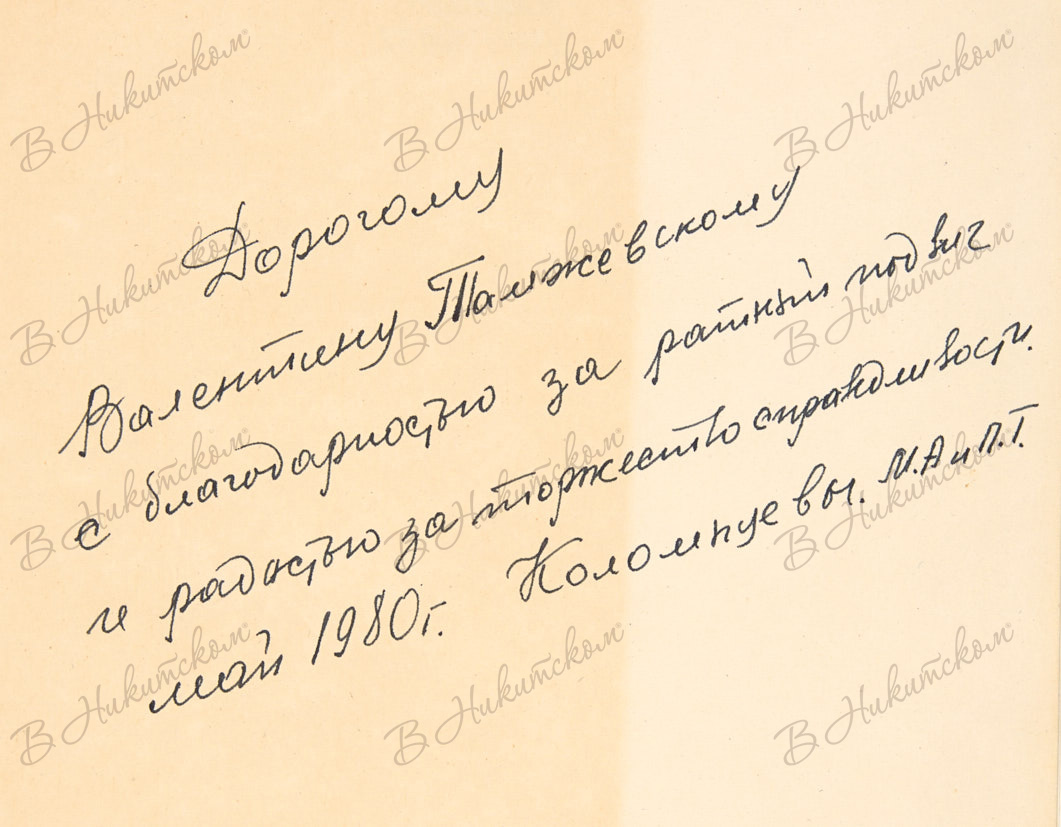 Дорогому
Валентину Тамжевскому
с благодарностью за ратный подвиг
и радостью за торжество справдливости.
май 1980г. Коломпуевы. М.А и П.Т.
В Никитском